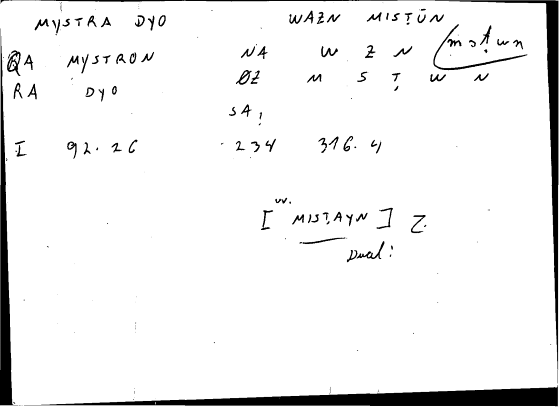 MYSTRA DYO WAZN MISṬŪN
QA MYSTRON NA W Z N (msṭwn
RA DYO ØZ M S Ṭ W N
SA!
I 92.26 234 316.4
w.
[ MISṬAYN ] Z.
Dual!